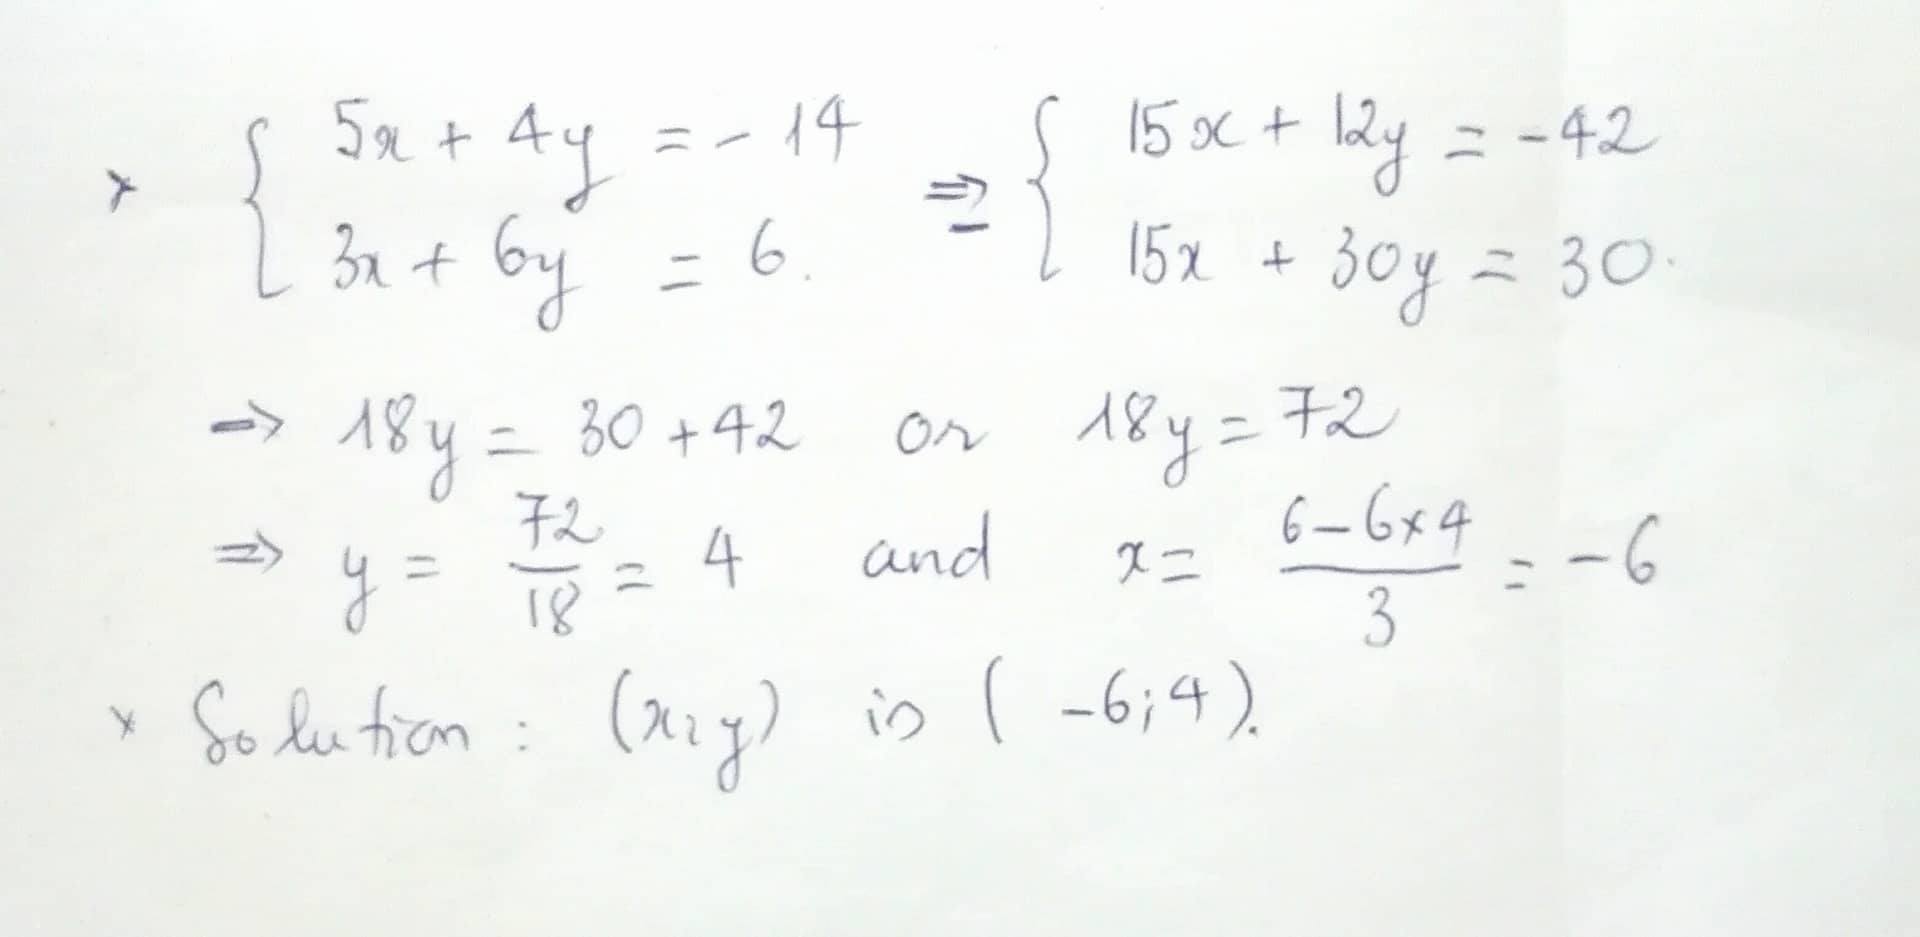 × { 5x + 4y = - 14 => { 15x + 12y = -42
3x + 6y = 6. 15x + 30y = 30.
=> 18y = 30 + 42 or 18y = 72
=> y = 72/18 = 4 and x = (6-6×4)/3 = -6
× Solution : (x, y) is ( -6; 4).